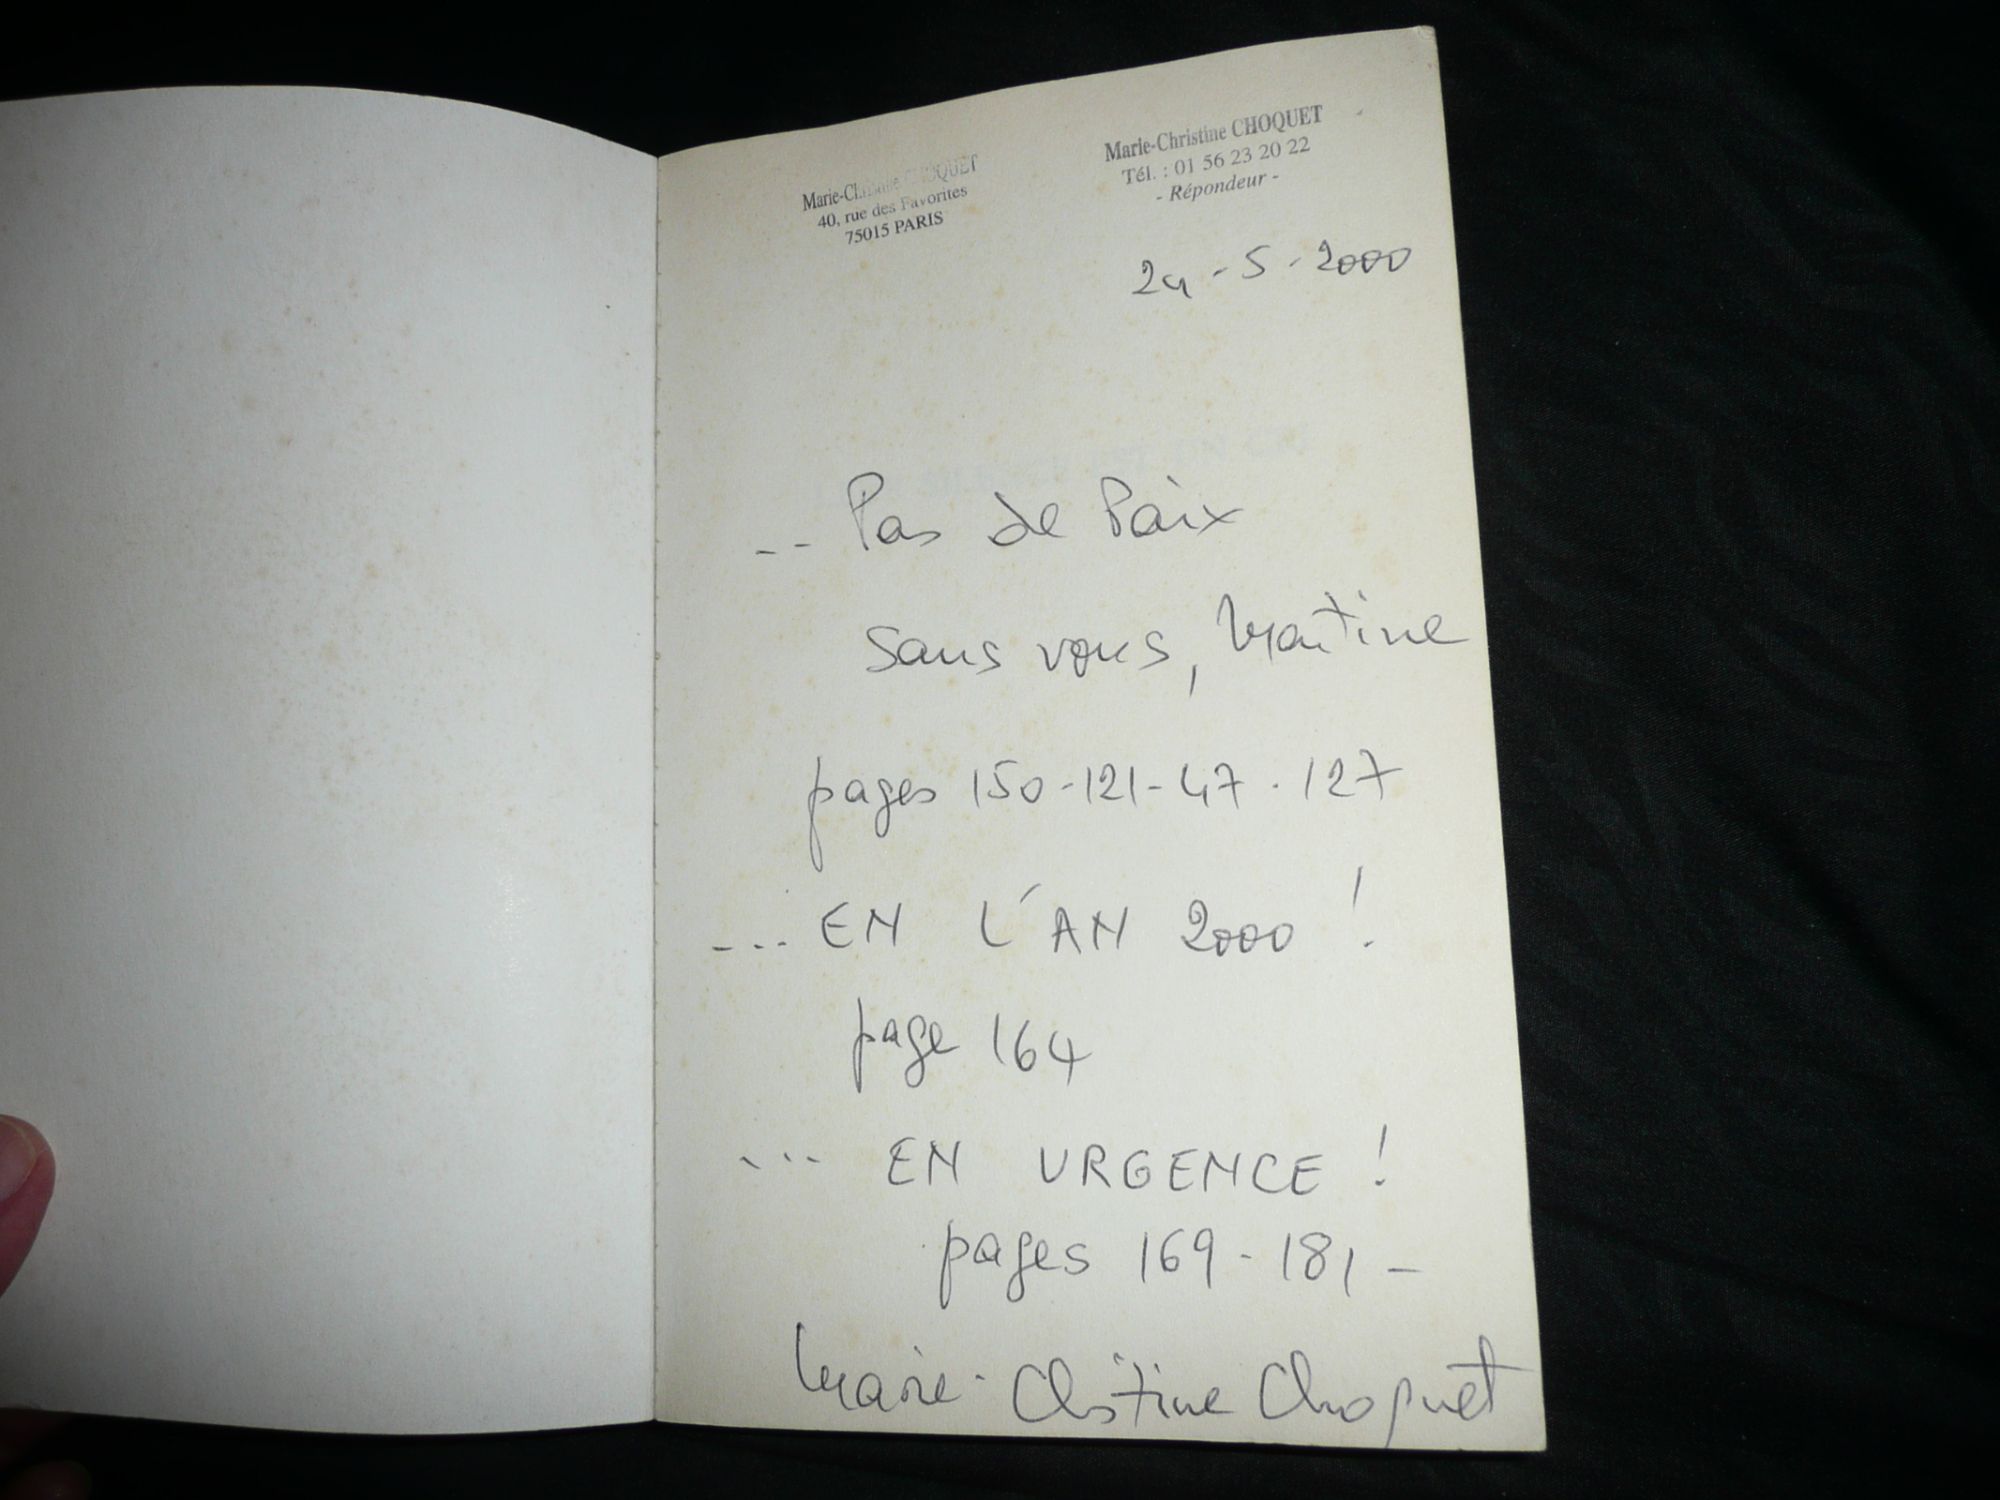 Marie-Christine CHOQUET
40, rue des Favorites
75015 PARIS
Marie-Christine CHOQUET
Tél. : 01 56 23 20 22
- Répondeur -
24 - 5 - 2000
... Pas de Paix
sans vous, Martine
pages 150-121-47-127
... EN L'AN 2000 !
page 164
... EN URGENCE !
pages 169-181-
Marie-Christine Choquet